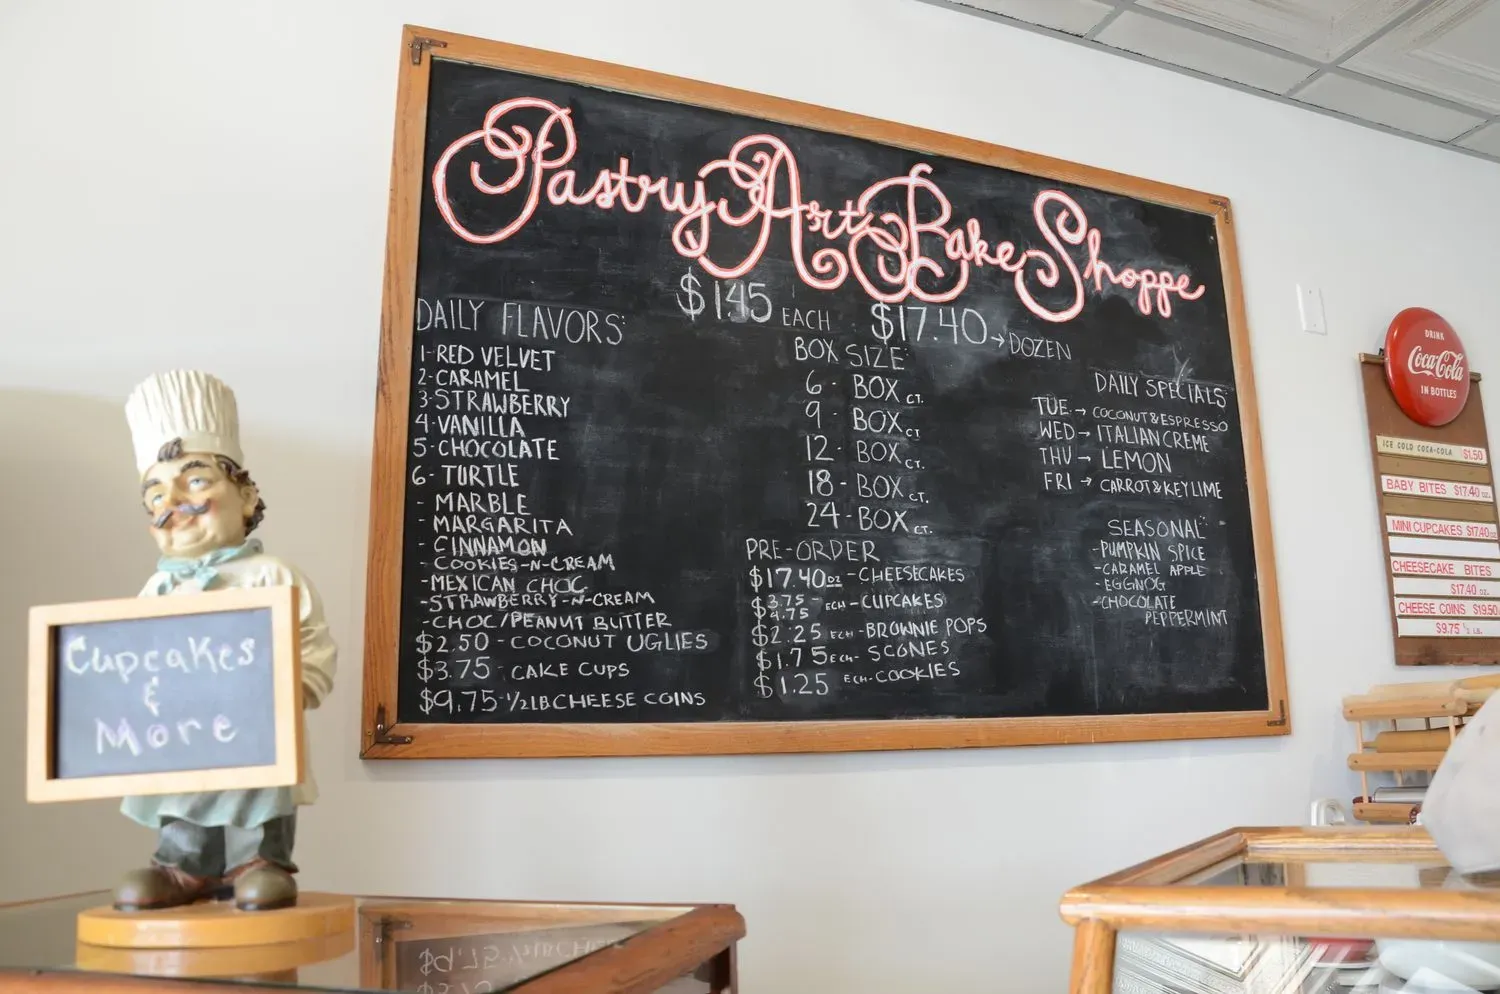 Pastry Art Bake Shoppe
$1.45 EACH $17.40 → DOZEN
DAILY FLAVORS:
1-RED VELVET
2-CARAMEL
3-STRAWBERRY
4-VANILLA
5-CHOCOLATE
6-TURTLE
- MARBLE
- MARGARITA
- CINNAMON
- COOKIES-N-CREAM
-MEXICAN CHOC
-STRAWBERRY-N-CREAM
-CHOC/PEANUT BUTTER
$2.50 - COCONUT UGLIES
$3.75 - CAKE CUPS
$9.75-1/2LB CHEESE COINS
BOX SIZE:
6 - BOX CT.
9 - BOX CT
12 - BOX CT.
18 - BOX CT.
24 - BOX CT.
PRE-ORDER
$17.40 DZ - CHEESECAKES
$3.75 -
$4.75 ECH - CUPCAKES
$2.25 ECH - BROWNIE POPS
$1.75 ECH - SCONES
$1.25 ECH - COOKIES
DAILY SPECIALS:
TUE. → COCONUT & ESPRESSO
WED → ITALIAN CREME
THU → LEMON
FRI → CARROT & KEY LIME
SEASONAL
-PUMPKIN SPICE
-CARAMEL APPLE
-EGGNOG
-CHOCOLATE
PEPPERMINT
Cupcakes
&
More
DRINK
Coca-Cola
IN BOTTLES
ICE COLD COCA-COLA $1.50
BABY BITES $17.40 DZ.
MINI CUPCAKES $17.40 DZ
CHEESECAKE BITES
$17.40 DZ.
CHEESE COINS $19.50
$9.75 1/2 LB.